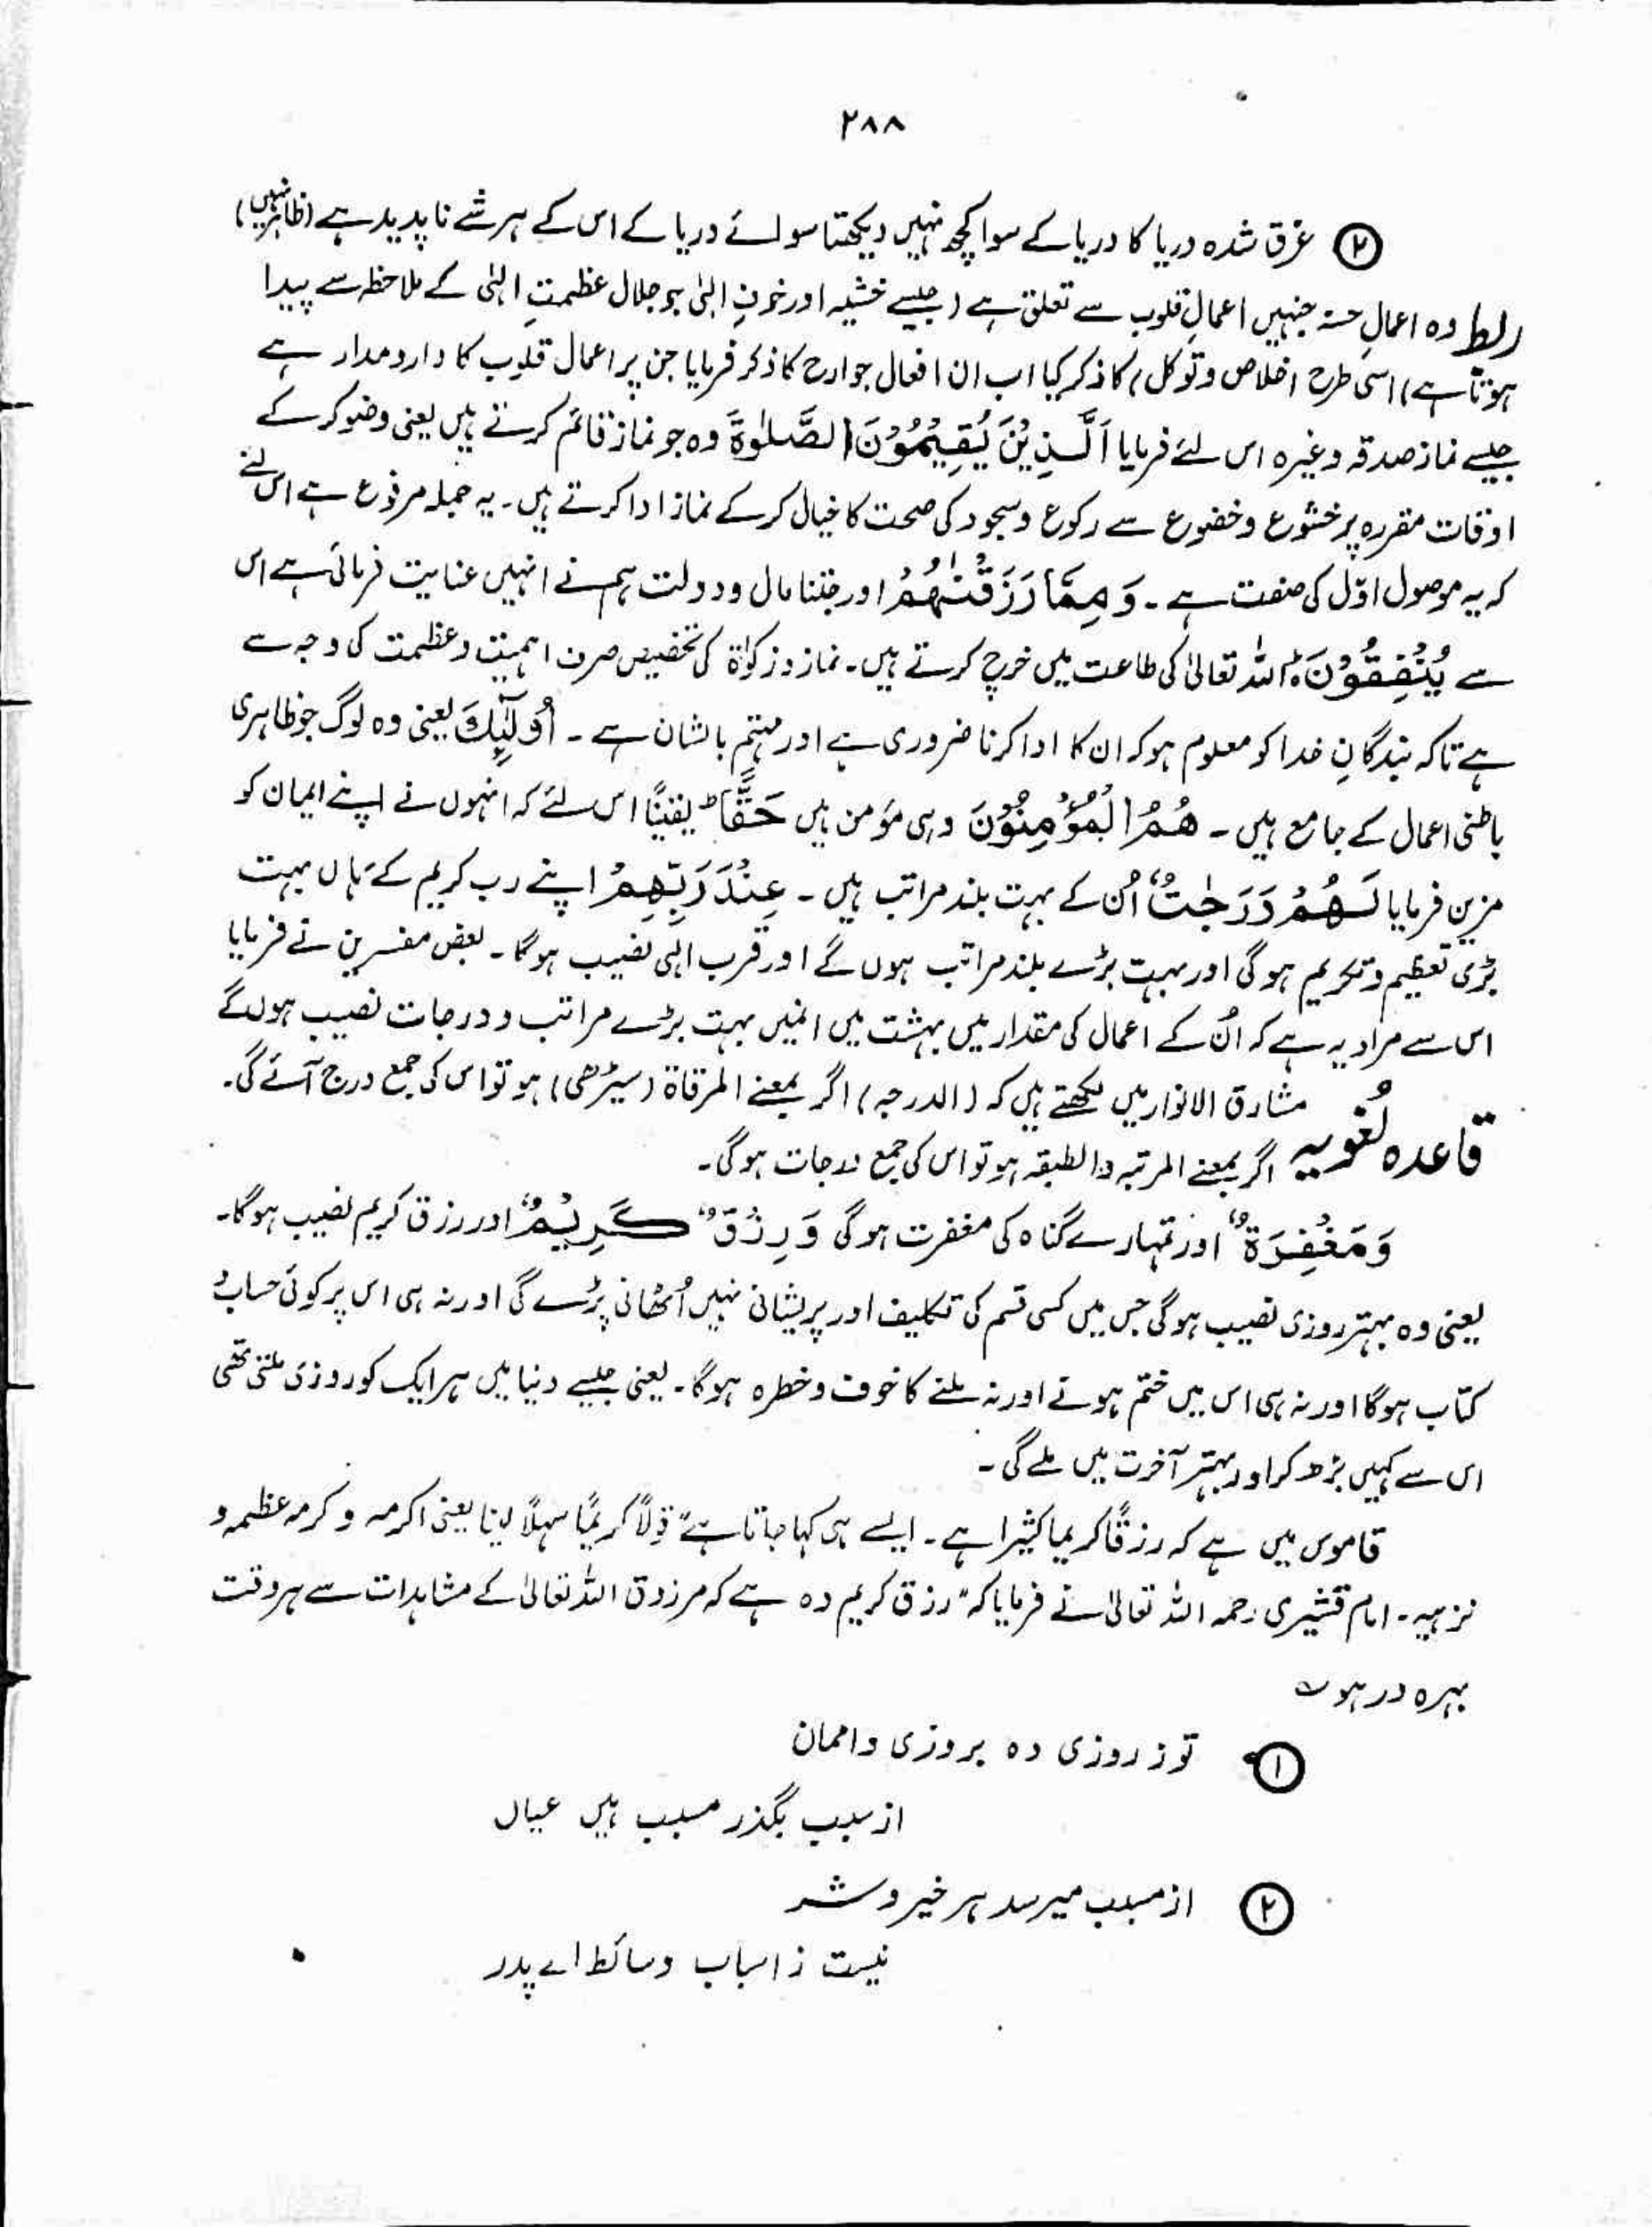 ۲۸۸
② غرق شدہ دریا کا دریا کے سوا کچھ نہیں دیکھتا سوائے دریا کے اس کے ہر شے ناپدید ہے (ظاہر نہیں)
ربط وہ اعمالِ حسنہ جنہیں اعمالِ قلوب سے تعلق ہے (جیسے خشیہ اور خوفِ الٰہی جو جلال عظمتِ الٰہی کے ملاحظہ سے پیدا
ہوتا ہے) اسی طرح اخلاص و توکل) کا ذکر کیا اب ان افعال جوارح کا ذکر فرمایا جن پر اعمال قلوب کا دارومدار ہے
جیسے نماز صدقہ وغیرہ اس لئے فرمایا اَلَّذِیْنَ یُقِیْمُوْنَ الصَّلٰوۃَ وہ جو نماز قائم کرتے ہیں یعنی وضو کر کے
اوقات مقررہ پر خشوع و خضوع سے رکوع و سجود کی صحت کا خیال کر کے نماز ادا کرتے ہیں۔ یہ جملہ مرفوع ہے اس لئے
کہ یہ موصول اوّل کی صفت ہے۔ وَمِمَّا رَزَقْنٰھُمْ اور جتنا مال و دولت ہم نے انہیں عنایت فرمائی ہے اس
سے یُنْفِقُوْنَ ؕ اللہ تعالیٰ کی طاعت میں خرچ کرتے ہیں۔ نماز و زکوٰۃ کی تخصیص صرف اہمیت و عظمت کی وجہ سے
ہے تاکہ بندگانِ خدا کو معلوم ہو کہ ان کا ادا کرنا ضروری ہے اور مہتم بالشان ہے۔ اُولٰٓئِکَ یعنی وہ لوگ جو ظاہری
باطنی اعمال کے جامع ہیں۔ ھُمُ الْمُؤْمِنُوْنَ وہی مؤمن ہیں حَقًّا ؕ یقینًا اس لئے کہ انہوں نے اپنے ایمان کو
مزین فرمایا لَھُمْ دَرَجٰتٌ اُن کے بہت بلند مراتب ہیں۔ عِنْدَ رَبِّھِمْ اپنے رب کریم کے ہاں بہت
بڑی تعظیم و تکریم ہوگی اور بہت بڑے بلند مراتب ہوں گے اور قرب الٰہی نصیب ہوگا۔ بعض مفسرین نے فرمایا
اس سے مراد یہ ہے کہ اُن کے اعمال کی مقدار میں بہشت میں انہیں بہت بڑے مراتب و درجات نصیب ہوں گے
مشارق الانوار میں لکھتے ہیں کہ (الدرجہ) اگر بمعنے المرقاۃ (سیڑھی) ہو تو اس کی جمع درج آئے گی۔
قاعدہ لُغویہ اگر بمعنے المرتبہ والطبقہ ہو تو اس کی جمع درجات ہوگی۔
وَمَغْفِرَۃٌ اور تمہارے گناہ کی مغفرت ہوگی وَرِزْقٌ کَرِیْمٌ اور رزق کریم نصیب ہوگا۔
یعنی وہ بہتر روزی نصیب ہوگی جس میں کسی قسم کی تکلیف اور پریشانی نہیں اُٹھانی پڑے گی اور نہ ہی اس پر کوئی حساب و
کتاب ہوگا اور نہ ہی اس میں ختم ہونے اور نہ ملنے کا خوف و خطرہ ہوگا۔ یعنی جیسے دنیا میں ہر ایک کو روزی ملتی تھی
اس سے کہیں بڑھ کر اور بہتر آخرت میں ملے گی۔
قاموس میں ہے کہ رزقًا کریما کثیرا ہے۔ ایسے ہی کہا جاتا ہے قولاً کریمًا سہلاً لینا یعنی اکرمہ و کرمہ عظمہ و
نزہہ۔ امام قشیری رحمہ اللہ تعالیٰ نے فرمایا کہ "رزق کریم وہ ہے کہ مرزوق اللہ تعالیٰ کے مشاہدات سے ہر وقت
بہرہ ور ہو ؎
① تو ز روزی دہ بروزی وا ممان
از سبب بگذر مسبب بیں عیاں
② از مسبب میرسد ہر خیر و شر
نیست ز اسباب وسائط اے پدر